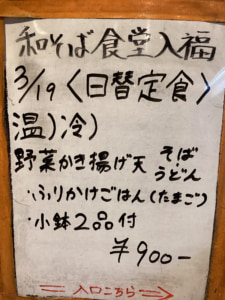 和そば食堂入福
3/19〈日替定食〉
温)冷)
野菜かき揚げ天 そば・うどん
・ふりかけごはん(たまご)
・小鉢2品付
¥900-
入口こちら→